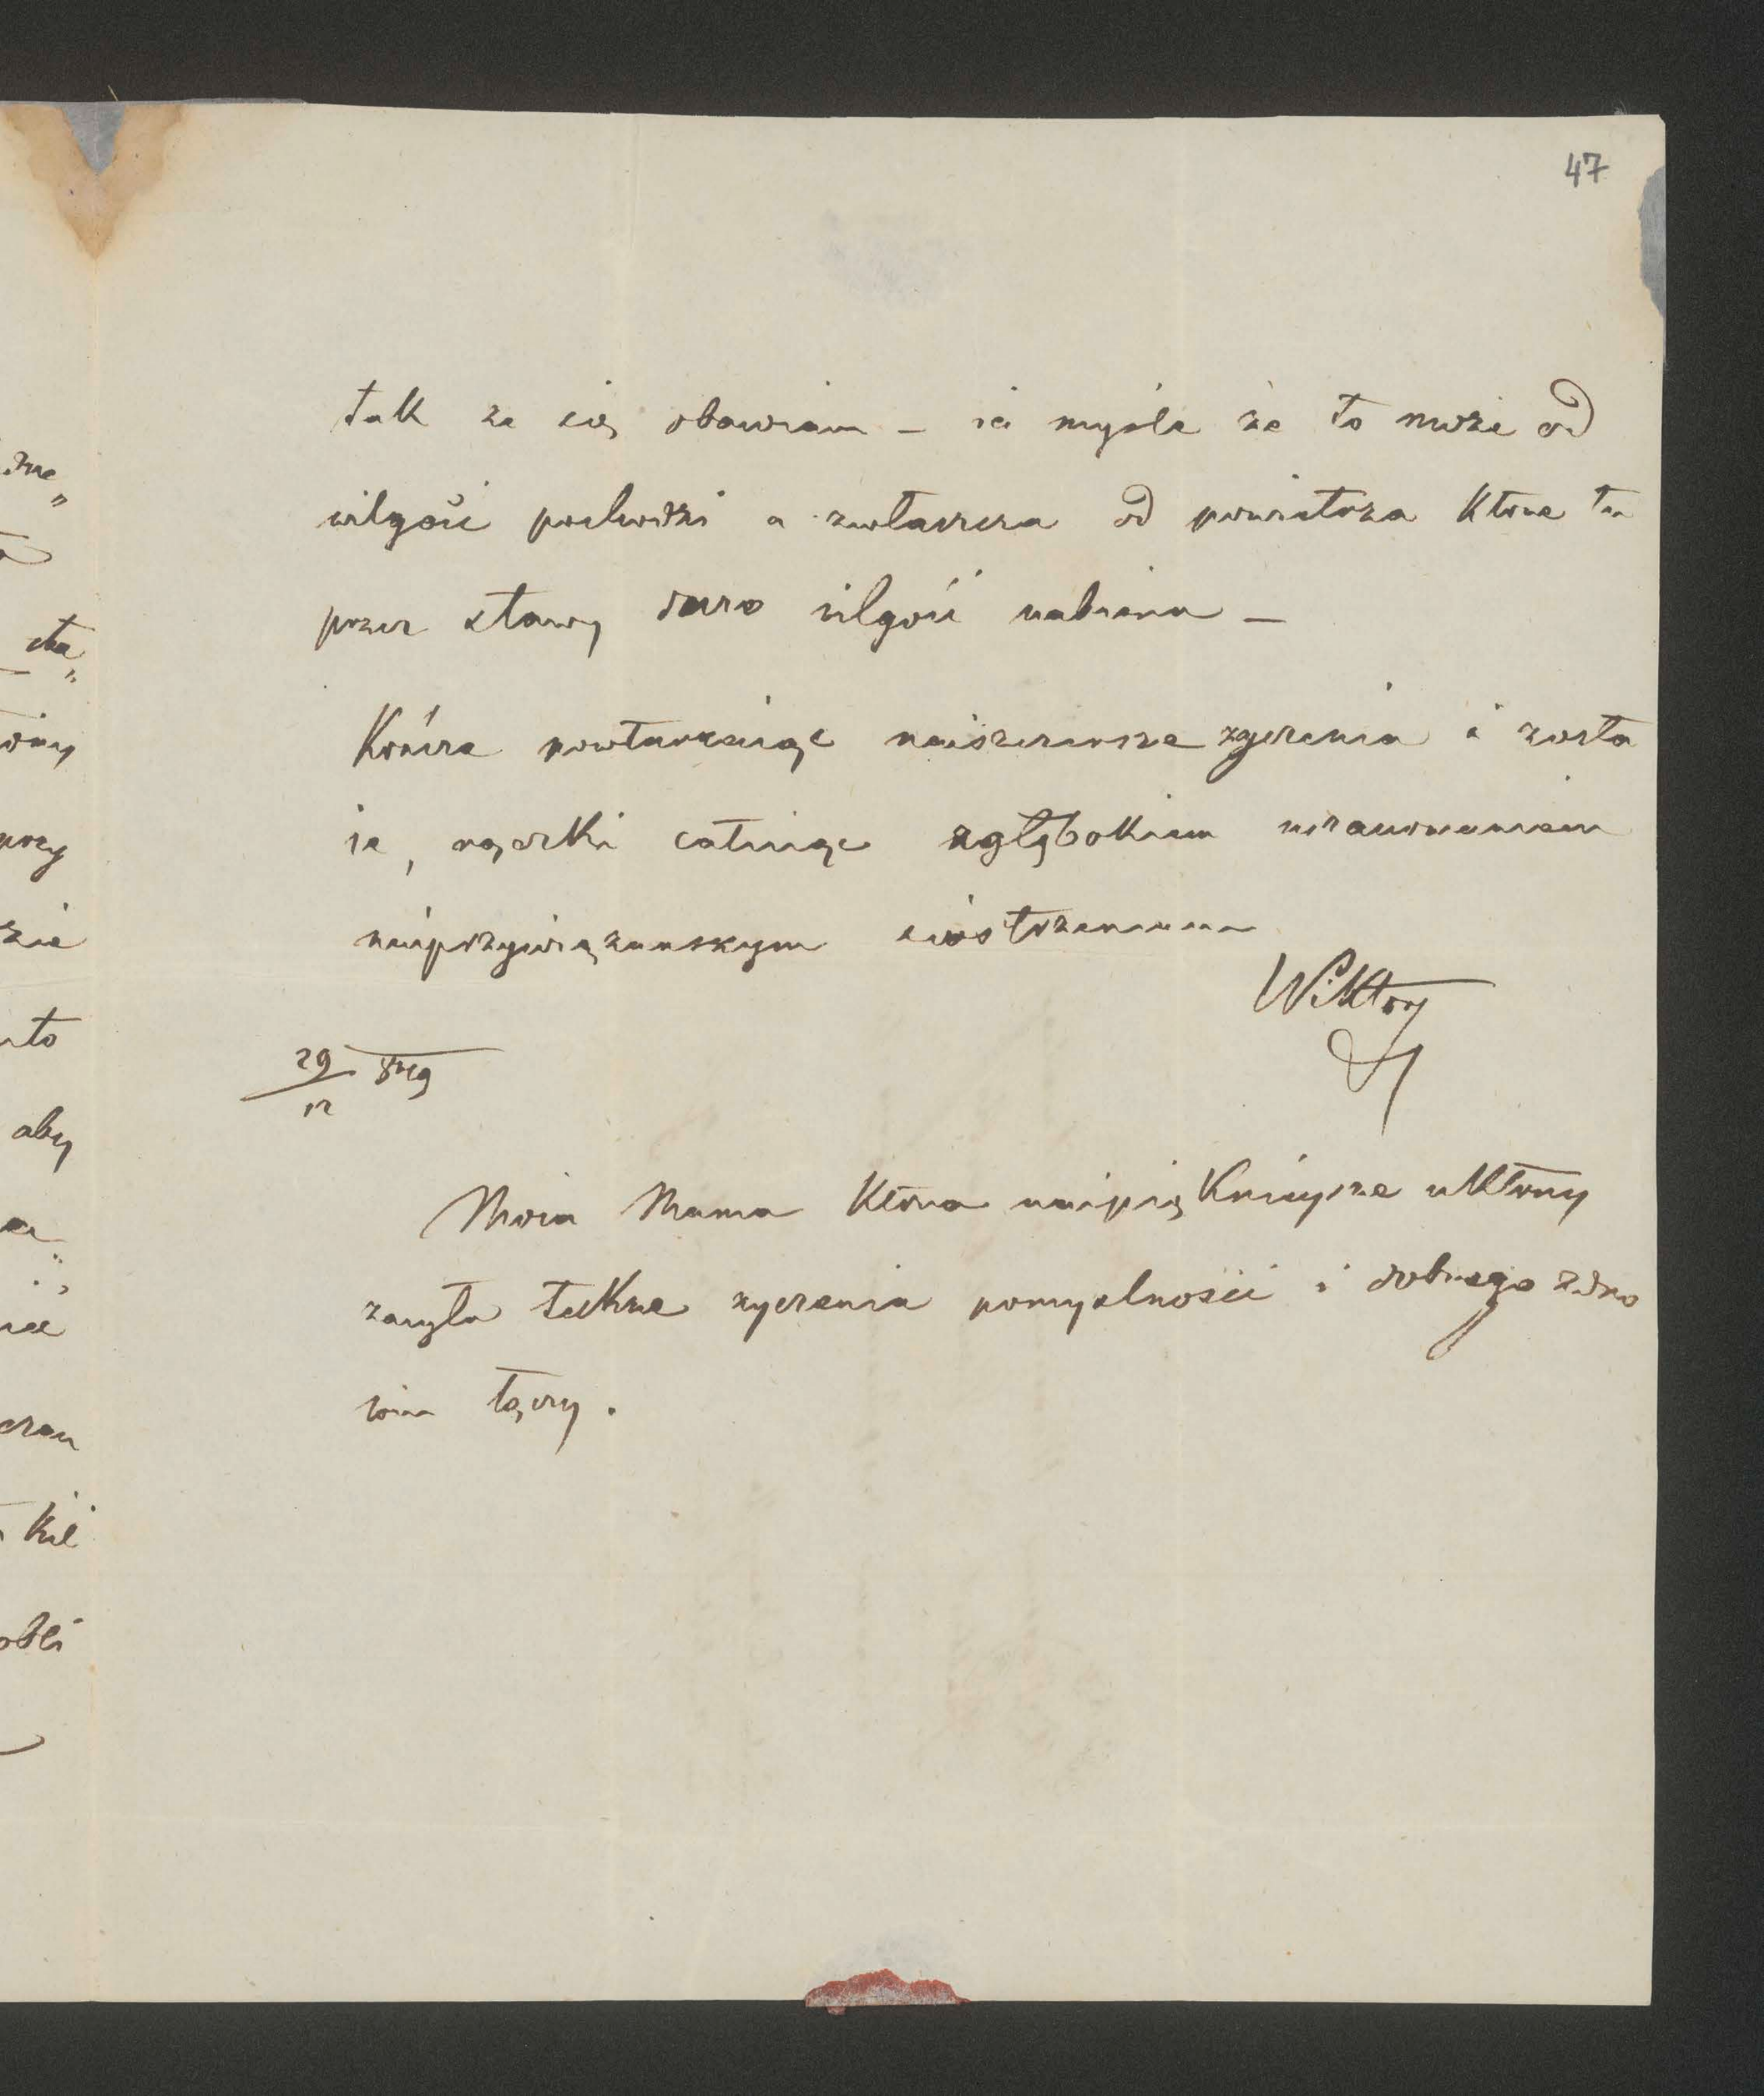 47
tak że się obawiam – ia myśle że to może od
wilgoci pochodzi a zwłaszcza od powietrza które tu
przez stawy dużo wilgoci nabiera –
Kończe powtarzaiąc naiszczersze zyczenia i zosta
ie, rączki całuiąc zgłębokiem uszanowaniem
naiprzywiązanszym siostrzencem
Wiktor
29/12 849
Moia Mama która naipięknieysze ukłony
zasyła także zyczenia pomyslności i dobrego zdro
wia łączy.
przy
zie
aby